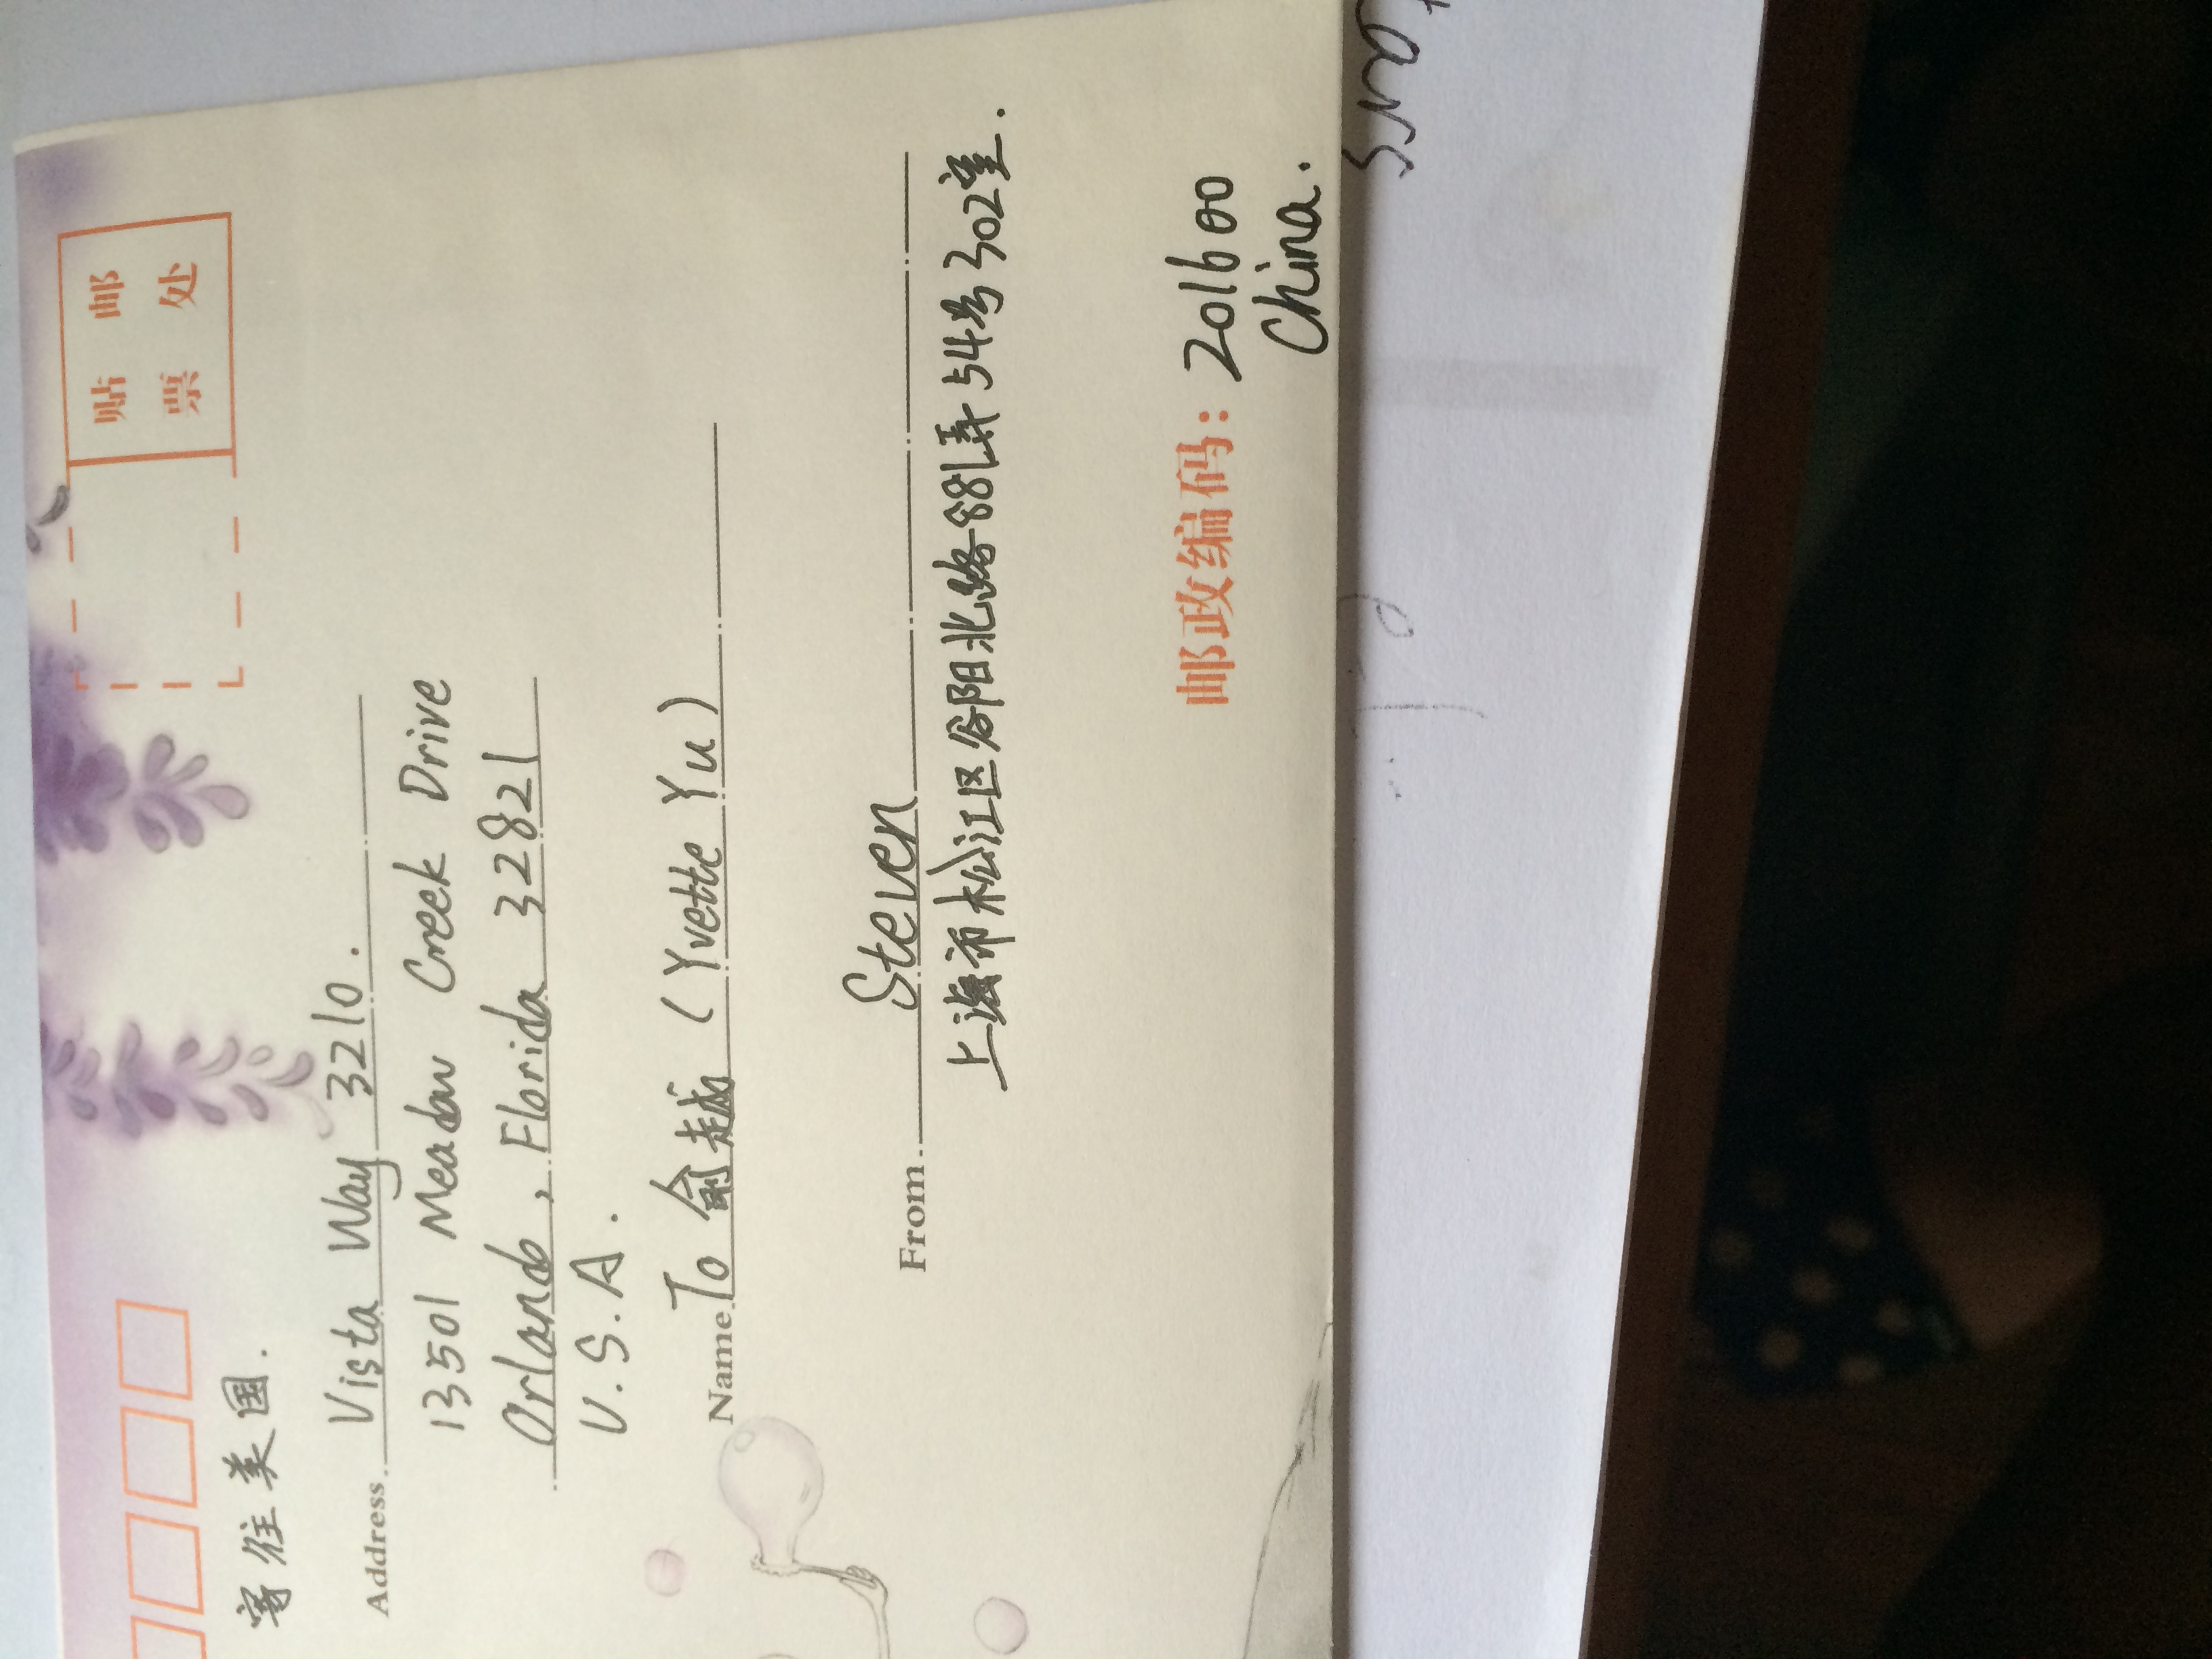 贴 邮
票 处
寄往美国.
Address Vista Way 3210.
13501 Meadow Creek Drive
Orlando, Florida 32821
U.S.A.
Name To 俞越 (Yvette Yu)
From Steven
上海市松江区谷阳北路881弄54号302室.
邮政编码: 201600
China.